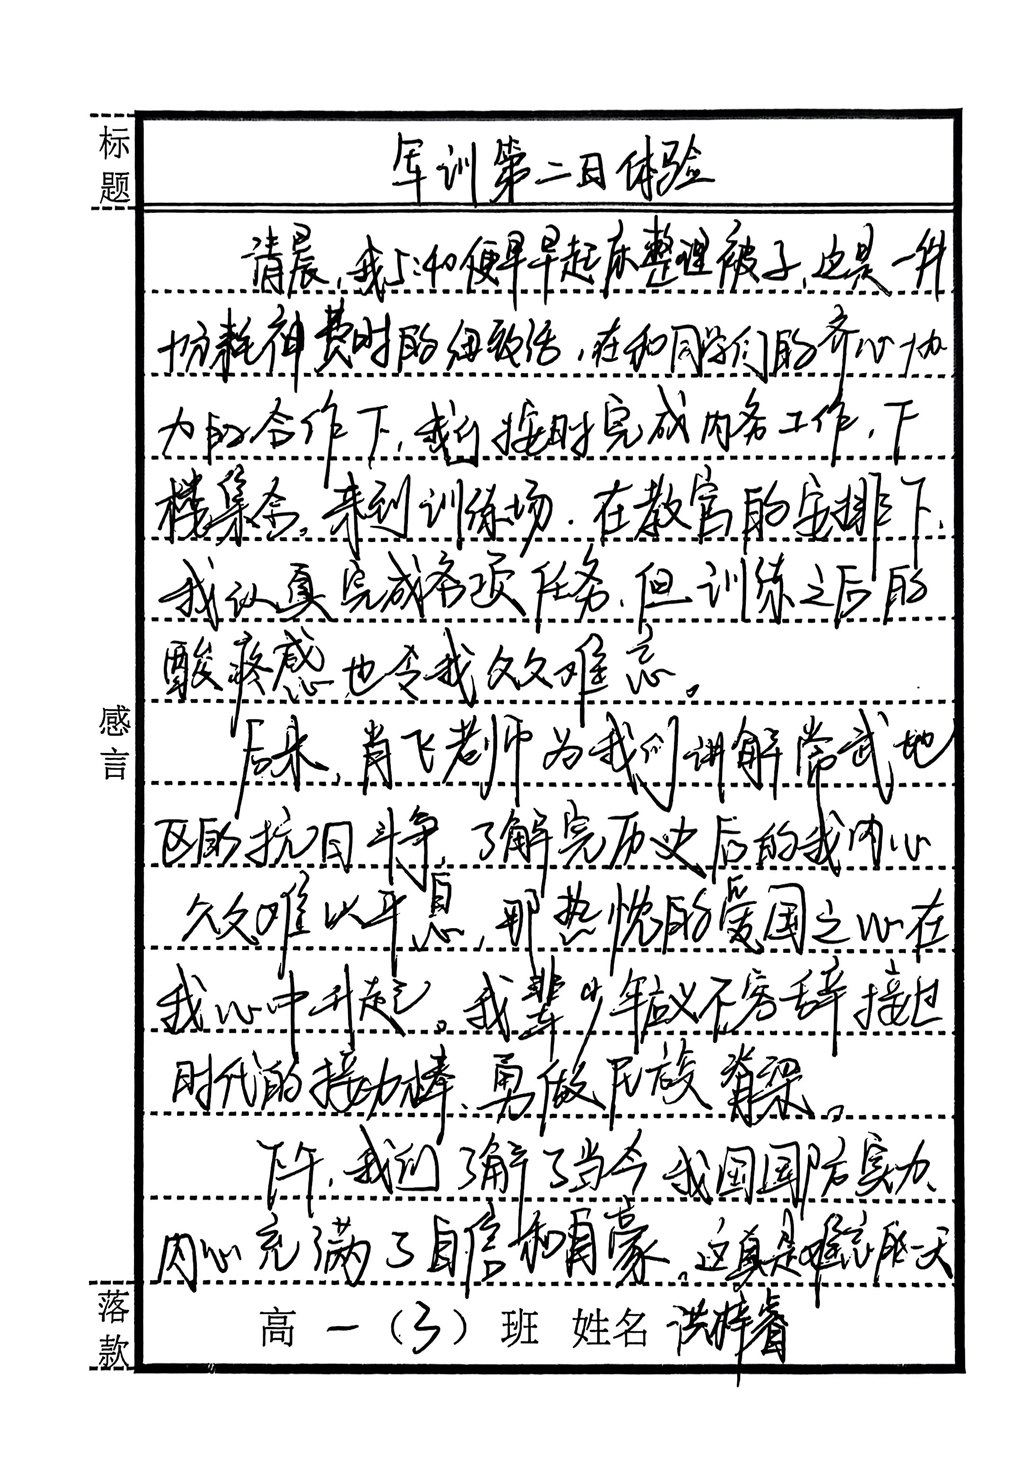 标题
军训第二日体验
清晨，我5:40便早早起床整理被子，这是一件
十分耗神费时的细致活，在和同学们的齐心协
力的合作下，我们按时完成内务工作，下
楼集合。来到训练场，在教官的安排下，
我认真完成各项任务，但训练之后的
酸疼感也令我久久难忘。
感言
后来，肖飞老师为我们讲解常武地
区的抗日斗争，了解完历史后的我内心
久久难以平息，那热忱的爱国之心在
我心中升起。我辈少年义不容辞接过
时代的接力棒，勇做民族脊梁。
下午，我们了解了当今我国国防实力，
内心充满了自信和自豪，这真是难忘的一天
落款
高一（3）班 姓名 洪梓睿